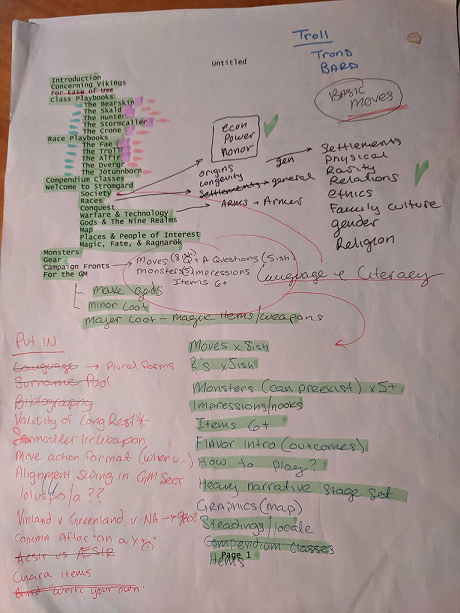 Untitled
Troll
Trond
BARD
BASIC MOVES
Introduction
Concerning Vikings
For Ease of Use
Class Playbooks
The Bearskin
The Skald
The Hunter
The Stormcaller
The Crone
Race Playbooks
The Fae
The Troll
The Alfir
The Dvergr
The Jotunnborn
Compendium Classes
Welcome to Stromgard
Society
Races
Conquest
Warfare & Technology
Gods & The Nine Realms
Map
Places & People of Interest
Magic, Fate, & Ragnarok
Monsters
Gear
Campaign Fronts
For the GM
econ
Power
Honor
origins
longevity
Settlements → general
gen
ARMS + Armor
Settlements
Physical
Rarity
Relations
ethics
Family culture
gender
Religion
Moves (8ish) Q + A Questions (5ish)
monsters(5) Impressions
Items 6+
Language & Literacy
Make gods
Minor Loot
Major Loot - magic items/weapons
PUT IN
Language → Plural forms
Surname Pool
Bibliography
Validity of Long Rest*
Stormcaller Ice Weapon
Move action format (when u...)
Alignment Swing in GM Sect
Voluspo/a ??
Vinland v Greenland v NA
Comma After "on a x"
Aesir vs AESIR
Chara items
"Write your own"
Moves x 8ish
?'s x 5ish
Monsters (can preexist) x5+
Impressions/nooks
Items 6+
Flavor intro (outcomes)
How to play?
Heavy narrative stage set
GRAPHICS (map)
Steadings/locale
Compendium Classes
Page 1
Items